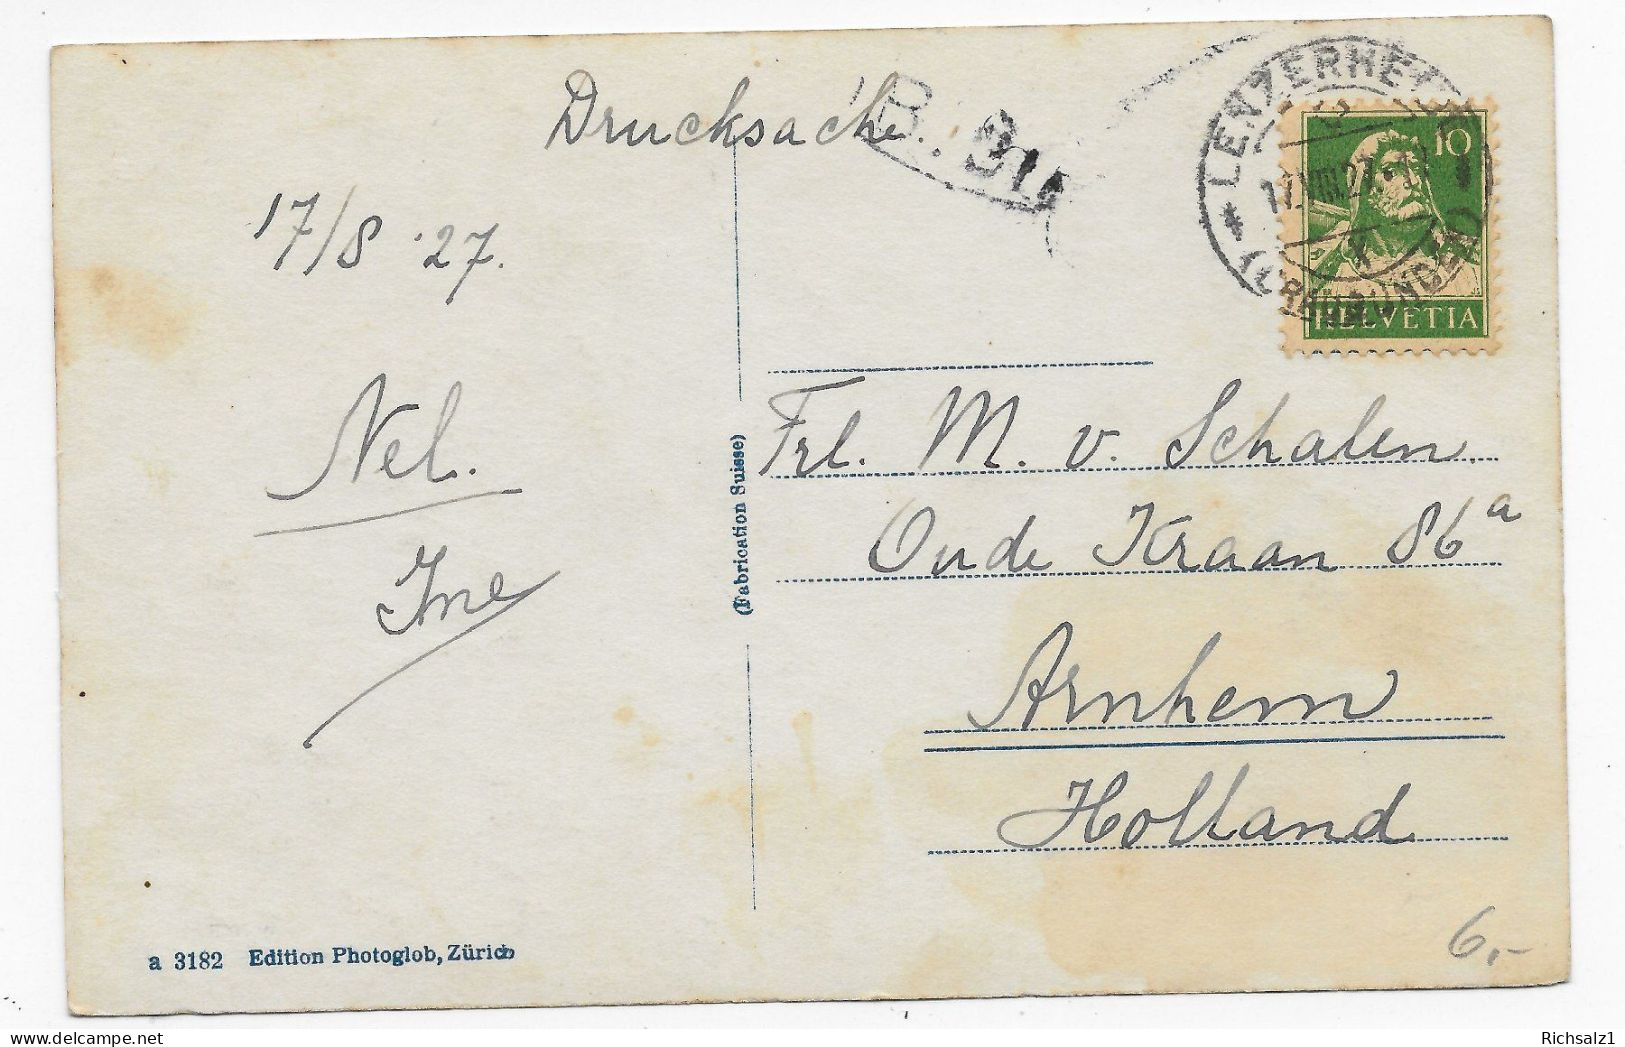 Drucksache.
17/8 '27.
Nel.
Ine
LENZERHEIDE
(GRAUBÜNDEN)
17.VIII.27
10
HELVETIA
(Fabrication Suisse)
Frl. M. v. Schalen
Oude Kraan 86a
Arnhem
Holland
6,-
a 3182 Edition Photoglob, Zürich
Richsalz1